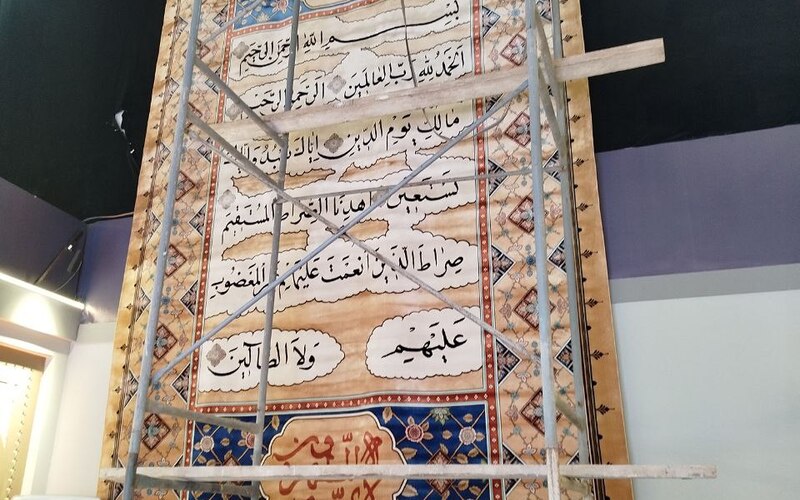 بِسْمِ اللهِ الرَّحْمنِ الرَّحِيمِ
اَلْحَمْدُ لِلّهِ رَبِّ الْعَالَمِينَ الرَّحْمنِ الرَّحِيمِ
مَالِكِ يَوْمِ الدِّينِ اِيَّاكَ نَعْبُدُ وَاِيَّاكَ
نَسْتَعِينُ اِهْدِنَا الصِّرَاطَ الْمُسْتَقِيمَ
صِرَاطَ الَّذِينَ اَنْعَمْتَ عَلَيْهِمْ غَيْرِ الْمَغْضُوبِ
عَلَيْهِمْ وَلَا الضَّالِّينَ